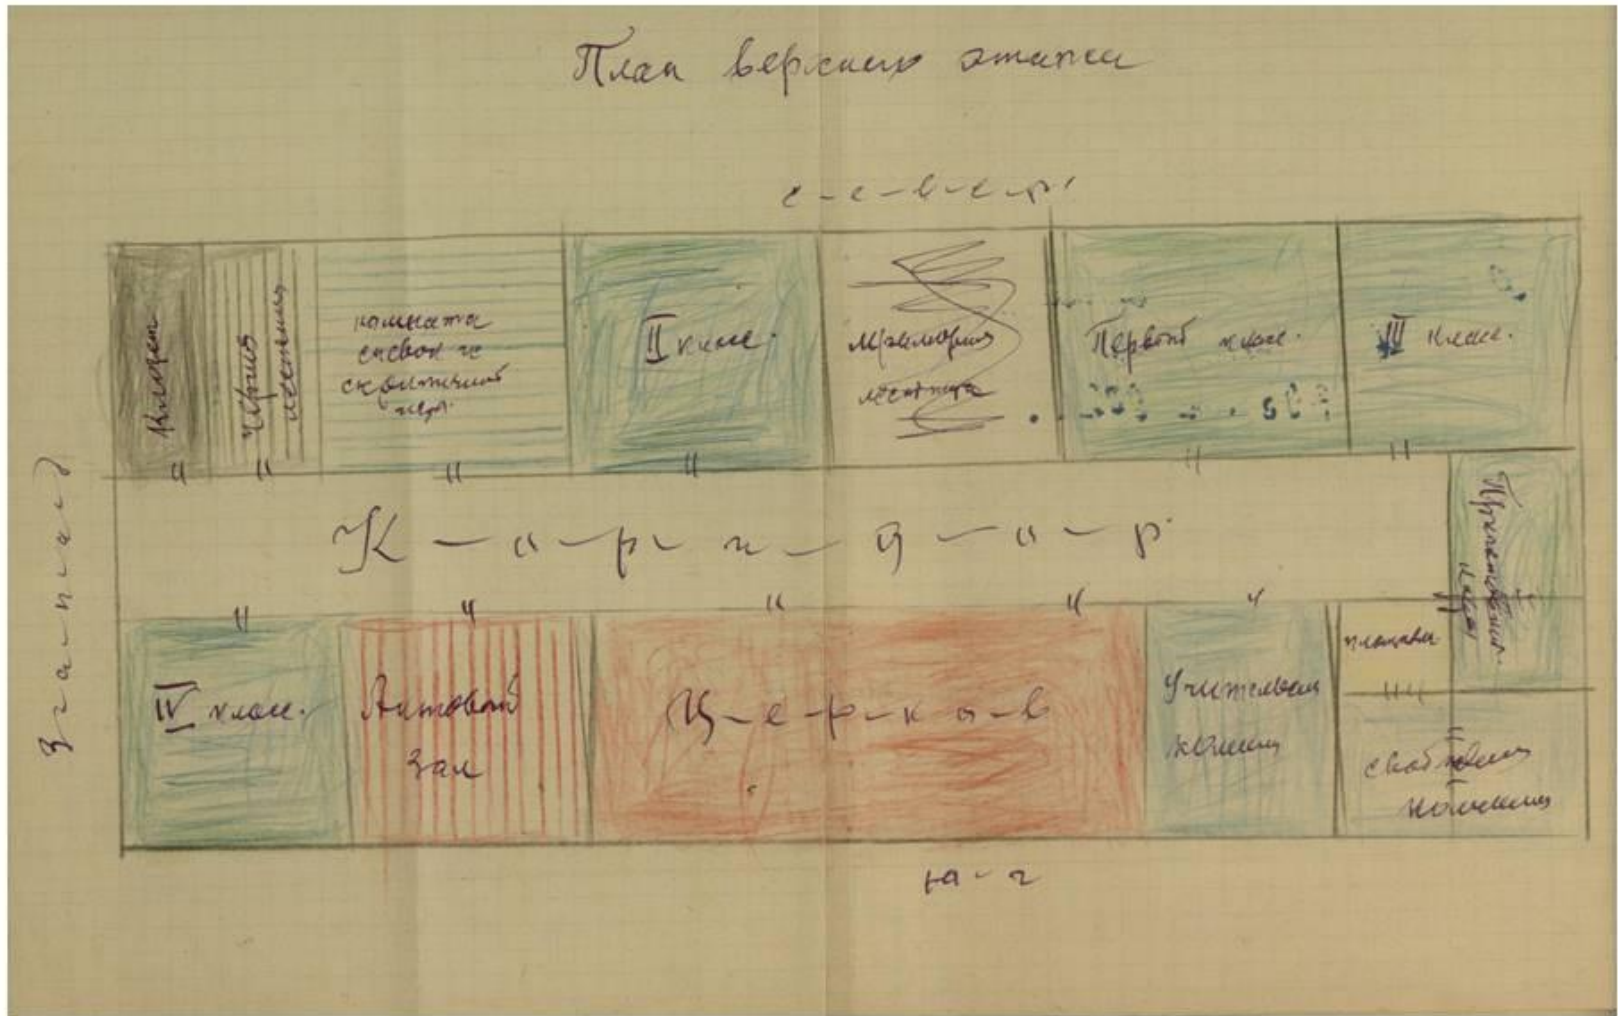 План верхнего этажа
с-е-в-е-р
Клозет
Чёрная
лестница
комната
спевок и
скрипичной
игры
II класс.
Мраморная
лестница
Первый класс.
III класс.
З-а-п-а-д
К-о-р-и-д-о-р
IV класс.
Актовый
Зал
Ц-е-р-к-о-в
Учительская
комната
площадка
свободная
комната
ю-г